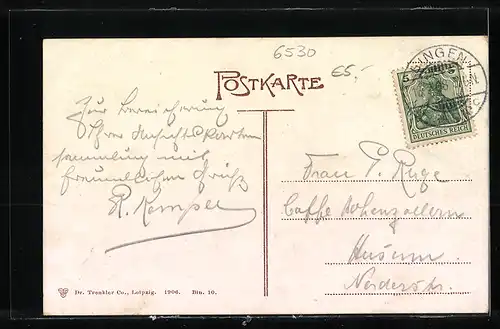 6530
65,-
POSTKARTE
BINGEN
5 5
DEUTSCHES REICH
Zur Bereicherung
Ihrer Ansichtskarten
sammlung mit
freundlichem Grüß
R. Kemper
Frau P. Ruge
Caffe Hohenzollern
Husum
Norderstr.
Dr. Trenkler Co., Leipzig. 1906. Bin. 10.